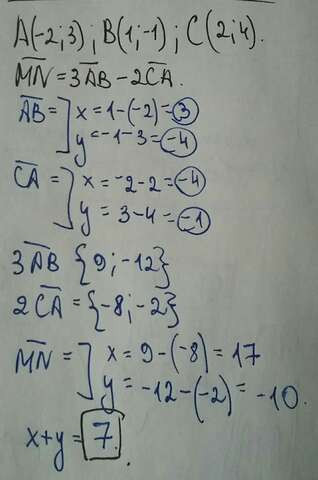 A(-2;3); B(1;-1); C(2;4).
MN = 3AB - 2CA.
AB = ] x = 1-(-2) = 3
y = -1-3 = -4
CA = ] x = -2-2 = -4
y = 3-4 = -1
3AB {9;-12}
2CA = {-8;-2}
MN = ] x = 9-(-8) = 17
y = -12-(-2) = -10.
x+y = 7.